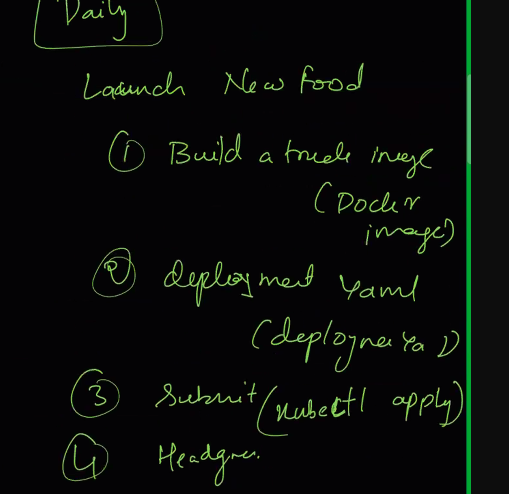 Daily
Launch New Food
① Build a truck image
(Docker
image)
② deployment yaml
(deployment
③ Submit (kubectl apply)
④